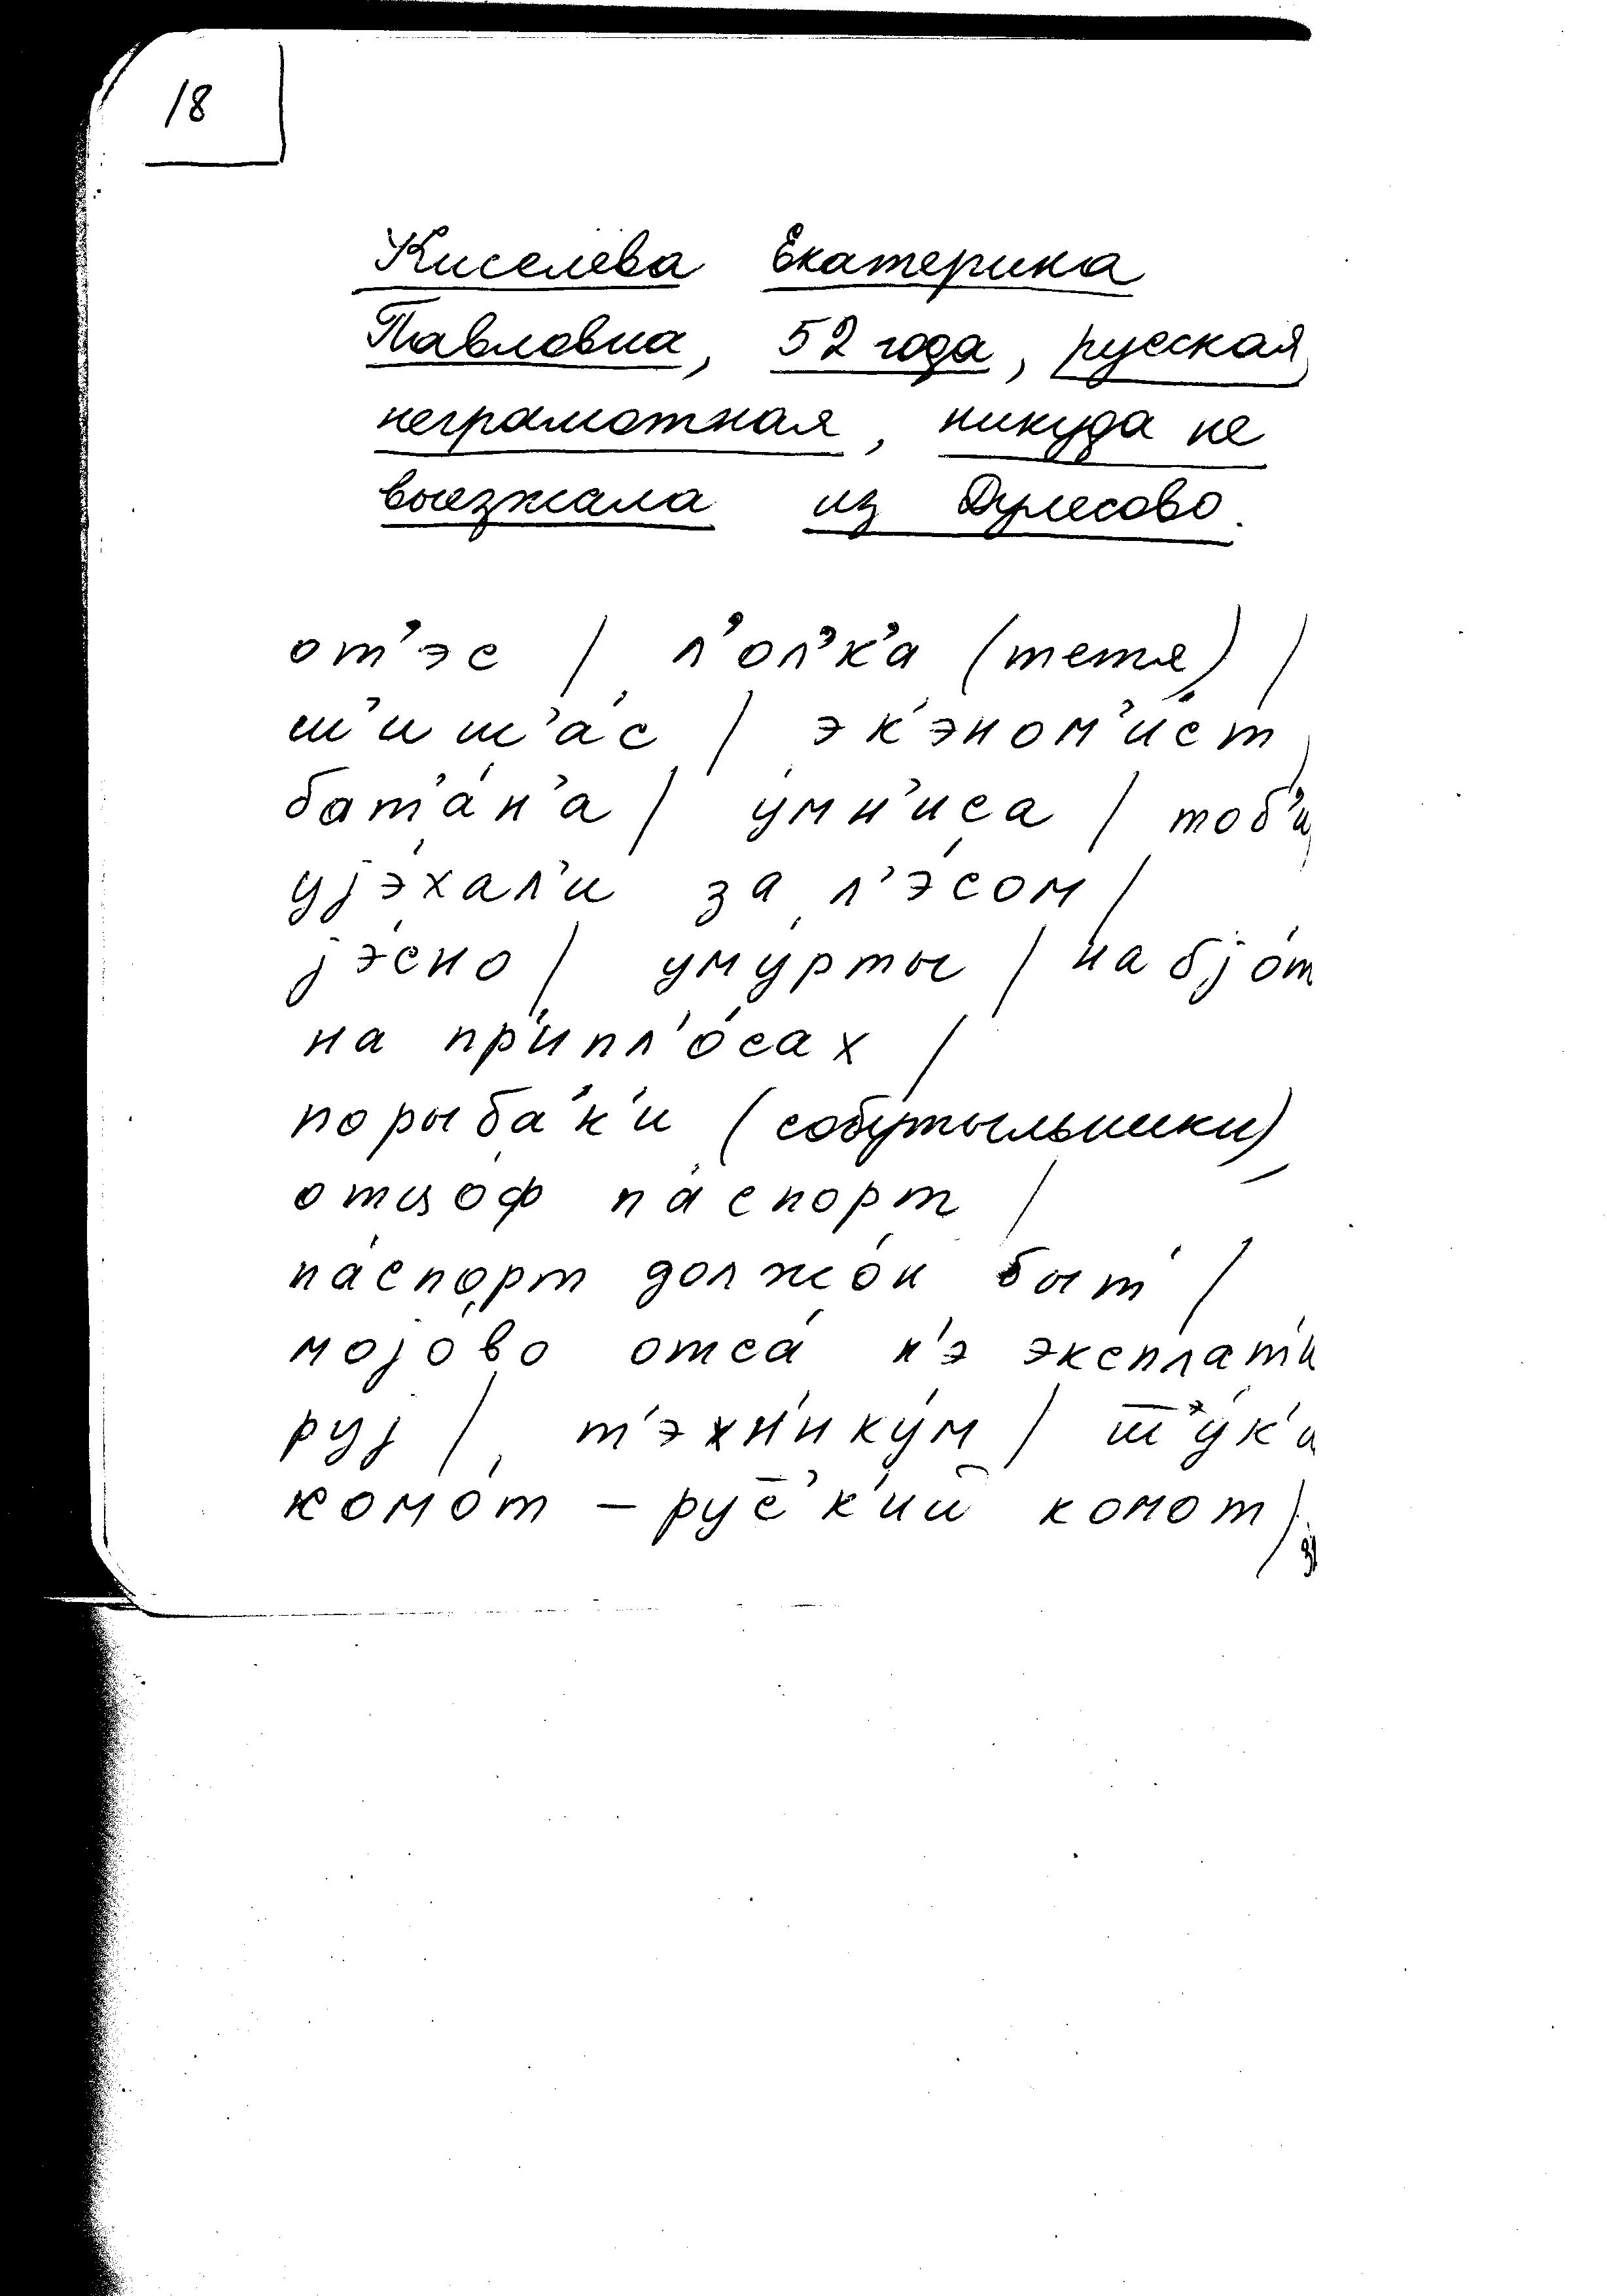 18
Киселева Екатерина
Павловна, 52 года, русская,
неграмотная, никуда не
выезжала из Дулесово.
от'эс / л'ол'к'а (тетя) /
ш'иш'а́с / эк'эном'и́ст /
бат'а́н'а / у́мн'иса / тоб'и /
уjэ́хал'и за л'э́сом /
jэ́сно / уму́рты / набjо́т
на пр'ипл'о́сах /
порыба́к'и (собутыльники) /
отцо́ф па́спорт /
па́спорт должо́н быт' /
моjо́во отса́ н'э эксплат'и
руj / т'эхн'ику́м / ш̅'у́к'и
комо́т – рус̅'к'ий комот /